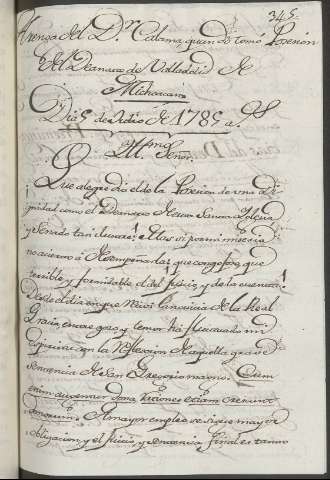 345
Arenga del D.r Calama quando tomó Posesión
del Deanato de Valladolid de
Michoacan
Dia 5 de Julio de 1785 a.s
Ill.mo Señor.
Que alegre dia el de la Posesion de una dig
nidad como el Deanato de esta Santa Iglesia
y Senado tan
no acierto a desempeñarlas que congojoso, que
terrible y formidable el del Juicio, y de la cuenta!
Desde el dia en que la Real
Gracia en tare gozo y temor ha fluctuado mi
Espiritu con la reflexion de aquella grave
sentencia de San Gregorio magno. Cum
enim augentur dona, rationes etiam crescunt
donorum. A mayor empleo se sigue mayor
obligacion, y el Juicio, y sentencia final es tanto